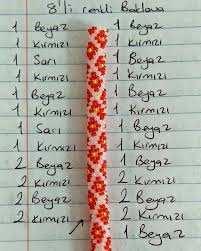 8'li renkli Baklava
1 Beyaz
1 Kırmızı
1 Sarı
1 Kırmızı
1 Beyaz
1 Kırmızı
1 Sarı
1 Kırmızı
2 Beyaz
2 Kırmızı
2 Beyaz
2 Kırmızı
1 Beyaz
1 Kırmızı
1 Beyaz
1 Kırmızı
1 Beyaz
1 Kırmızı
1 Beyaz
1 Kırmızı
2 Beyaz
2 Kırmızı
2 Beyaz
2 Kırmızı
1 Beyaz